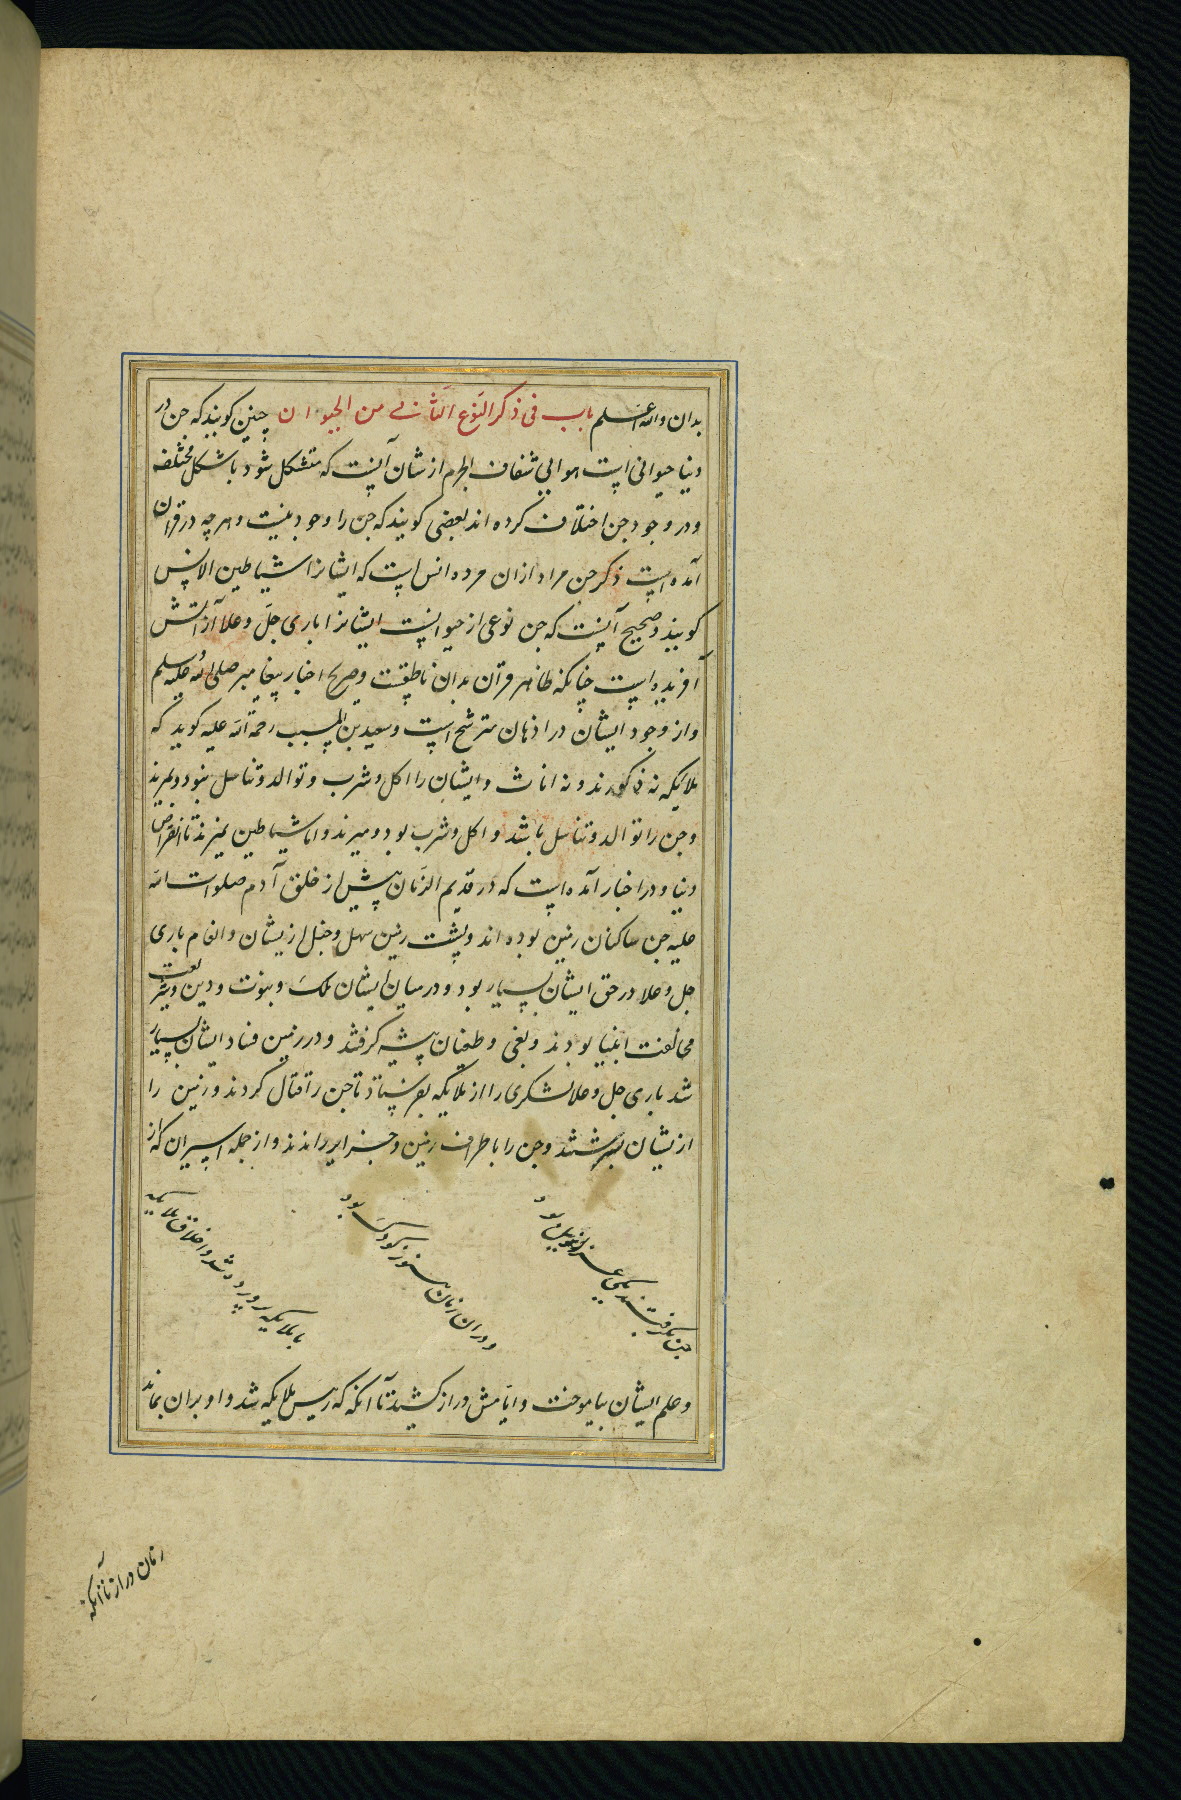 بدان والله اعلم باب فی ذکر النوع الثانی من الحیوان چنین کویند که جن در
دنیا حیوانی است هوایی شفاف الجرم از شان آنست که متشکل شود باشکل مختلفه
ودر وجود جن اختلاف کرده اند بعضی کویند که جن را وجود نیست وهر چه در قران
آمده است ذکر جن مراد ازان مرده انس است که ایشانرا شیاطین الانس
کویند وصحیح آنست که جن نوعی از حیوانست ایشانرا باری جل وعلا از آتش
آفریده است چنانکه ظاهر قرآن بدان ناطقست وصریح اخبار پیغامبر صلی الله علیه وسلم
واز وجود ایشان در اذهان مترشح است وسعید بن المسیب رحمة الله علیه کوید که
ملایکه نه ذکورند ونه اناث وایشان را اکل وشرب وتوالد وتناسل نبود ونمیرند
وجن را توالد وتناسل باشد واکل وشرب بود ومیرند واما شیاطین نمیرند تا انقراض
دنیا ودر اخبار آمده است که در قدیم الزمان پیش از خلق آدم صلوات الله
علیه جن ساکنان زمین بوده اند وپشت زمین سهل وجبل ازیشان وانعام باری
جل وعلا در حق ایشان بسیار بود ودر میان ایشان ملک ونبوت ودین وشریعت
مخالفت انبیا بودند وبغی وطغیان پیشه کرفتند ودر زمین فساد ایشان بسیار
شد باری جل وعلا لشکری را از ملایکه بفرستاد تا جن را قتال کردند وزمین را
ازیشان وجن را باطراف زمین وجزایر راندند واز جمله اسیران که از
جن بکرفتند یکی عزازیل بود
ودران زمان هنوز کودک بود
با ملایکه پرورده شد واخلاق ملایکه
وعلم ایشان بیاموخت وایامش دراز کشید تا آنکه که رییس ملایکه شد واو بران بماند
زمان دراز تا آنکه